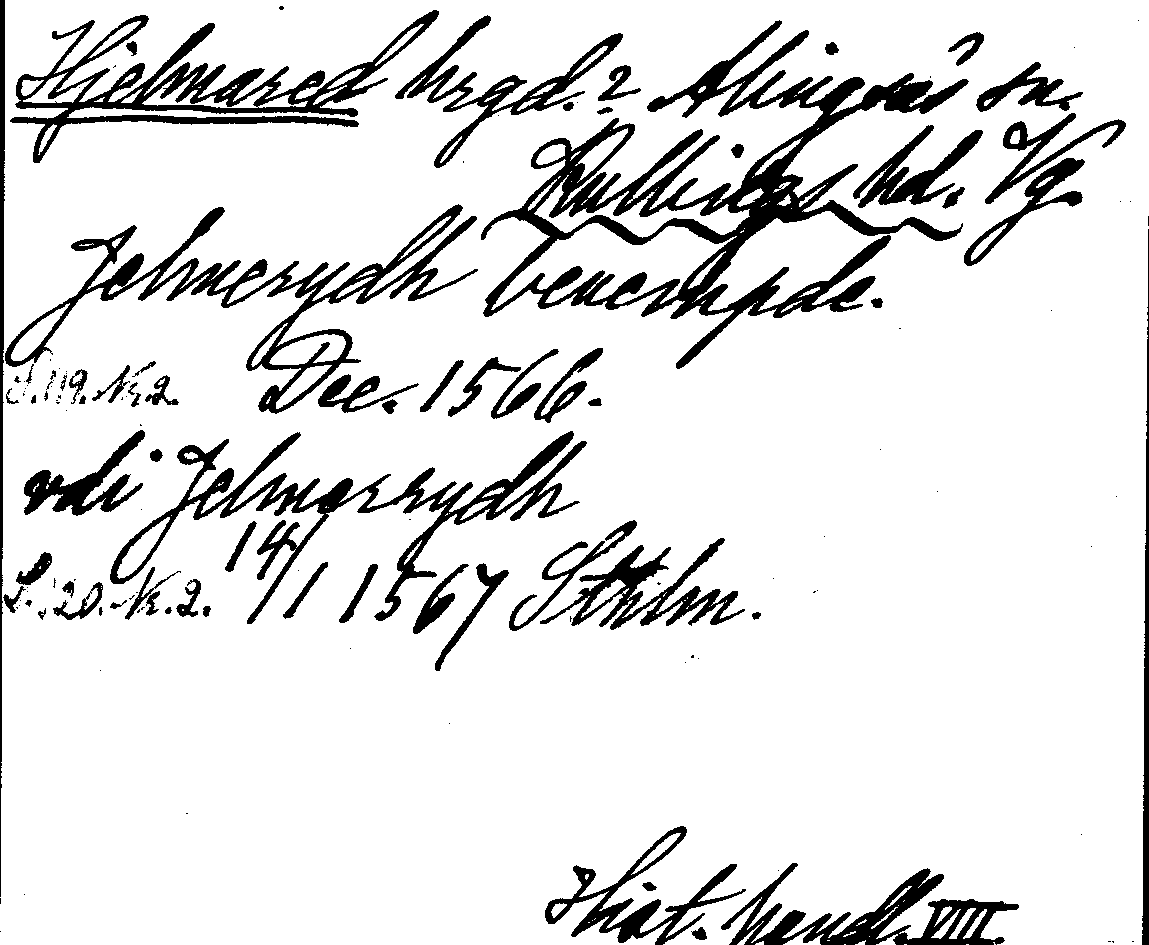 Hjelmared hrgd.? Alingsås sn.
Kullings hd. Vg.
Jelmerydh benempde.
S. 119. Nr. 2. Dec. 1566.
vdi Jelmerrydh
S. 120. Nr. 2. 14/1 1567 Sthlm.
Hist. handl. VIII.